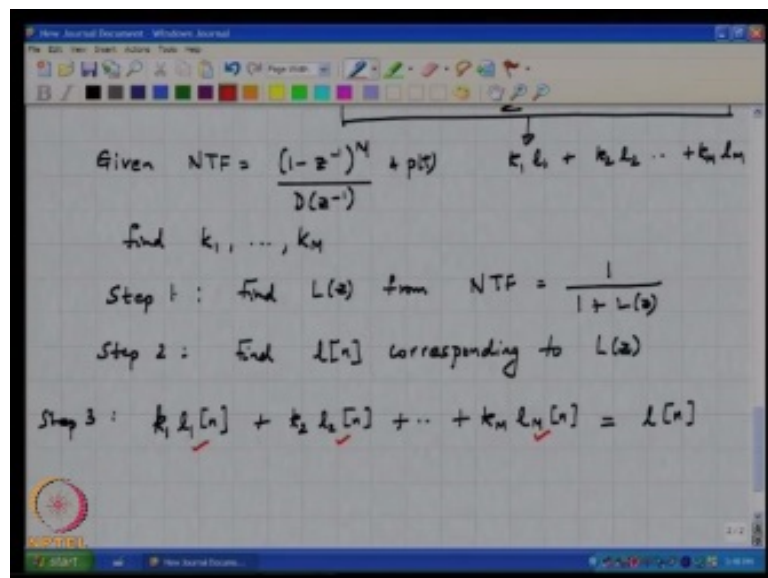 New Journal Document - Windows Journal
File Edit View Insert Actions Tools Help
Page Width
B I
k₁ l₁ + k₂ l₂ ·· + k_M l_M
Given NTF = (1 - z⁻¹)^M / D(z⁻¹) + p(t)
find k₁, ..., k_M
Step 1 : find L(z) from NTF = 1 / (1 + L(z))
Step 2 : Find l[n] corresponding to L(z)
Step 3 : k₁ l₁[n] + k₂ l₂[n] + ·· + k_M l_M[n] = l[n]
NPTEL
2/2
start
New Journal Docum...